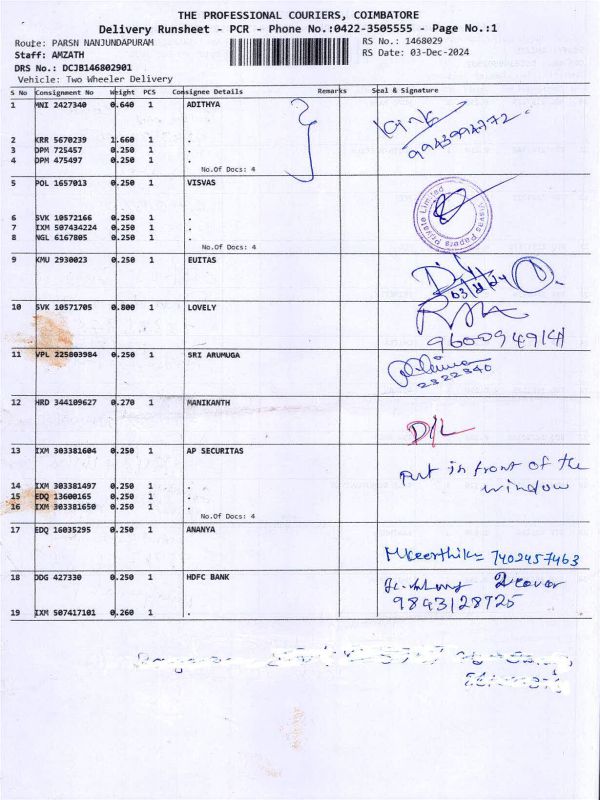 THE PROFESSIONAL COURIERS, COIMBATORE
Delivery Runsheet - PCR - Phone No.:0422-3505555 - Page No.:1
Route: PARSN NANJUNDAPURAM RS No.: 1468029
Staff: AMZATH RS Date: 03-Dec-2024
DRS No.: DCJB146802901
Vehicle: Two Wheeler Delivery
S No Consignment No Weight PCS Consignee Details Remarks Seal & Signature
1 MNI 2427340 0.640 1 ADITHYA
2 KRR 5670239 1.660 1 .
3 DPM 725457 0.250 1 .
4 DPM 475497 0.250 1 .
No.Of Docs: 4
5 POL 1657013 0.250 1 VISVAS
Visvas Papers Private Limited
6 SVK 10572166 0.250 1 .
7 IXM 507434224 0.250 1 .
8 NGL 6167805 0.250 1 .
No.Of Docs: 4
9 KMU 2930023 0.250 1 EUITAS
03/12/24
10 SVK 10571705 0.800 1 LOVELY
9600949141
11 VPL 225803984 0.250 1 SRI ARUMUGA
2322340
12 HRD 344109627 0.270 1 MANIKANTH
D/L
13 IXM 303381604 0.250 1 AP SECURITAS
Put in front of the
window
14 IXM 303381497 0.250 1 .
15 EDQ 13600165 0.250 1 .
16 IXM 303381650 0.250 1 .
No.Of Docs: 4
17 EDQ 16035295 0.250 1 ANANYA
M.Keerthika 7402457463
18 DDG 427330 0.250 1 HDFC BANK
2 cover
9843128725
19 IXM 507417101 0.260 1 .